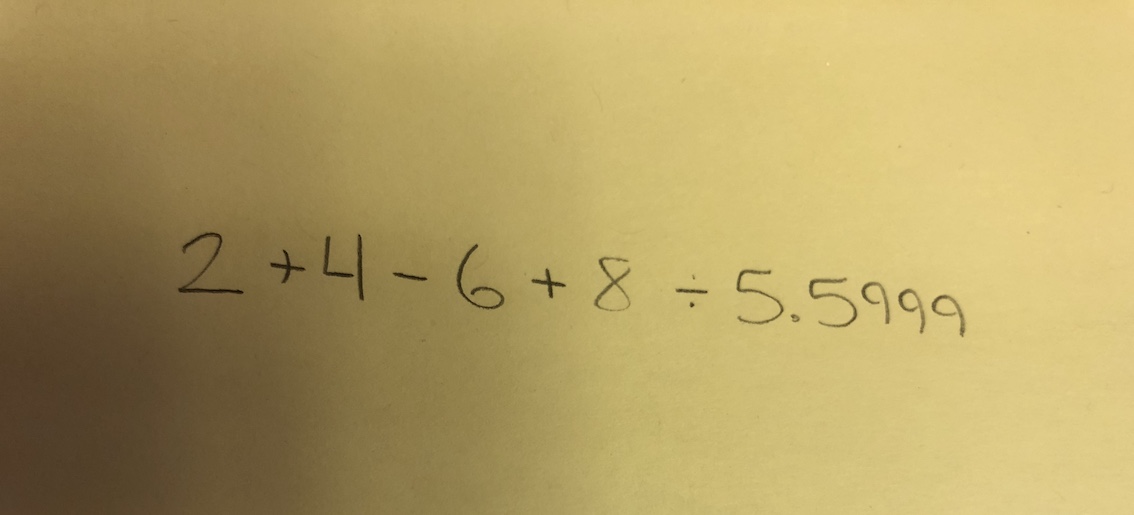 2 + 4 - 6 + 8 ÷ 5.5999